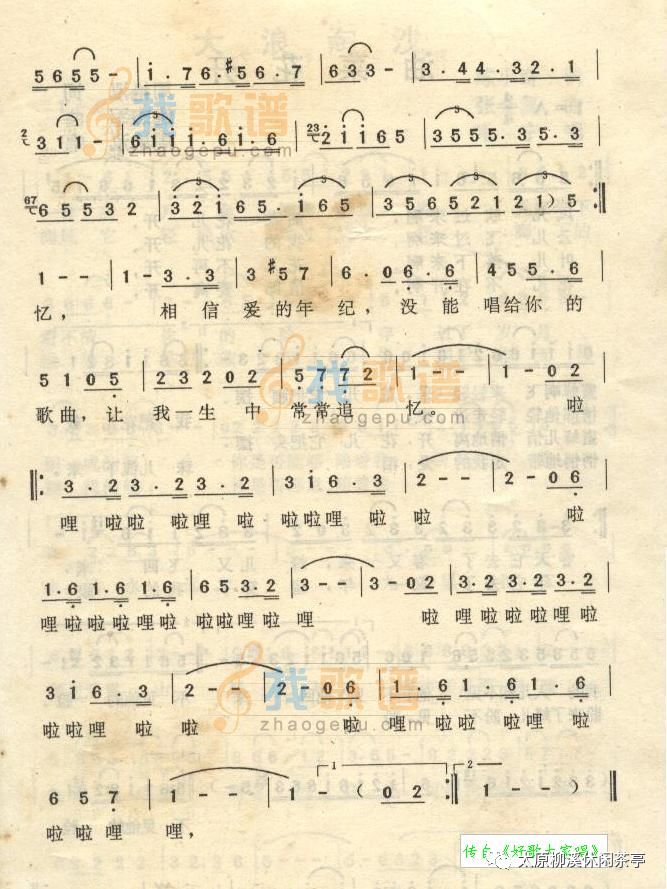 5655- | i.76.#56.7 | 633- | 3.44.32.1 |
2 311- | 6ii.i6.i6. | 23 2ii65 | 3555.35.3 |
67 65532 | 32i65.i65 | 35652121)5 :||
1-- | 1-3.3 | 3#57 | 6.06.6 | 455.6 |
忆， 相信 爱的年纪，没能 唱给你的
5105 | 23202 | 5 72 | 1-- | 1-- |
歌曲，让 我一生中 常常追 忆。 啦
||: 3.23.23.2 | 3i6.3 | 2-- | 2-06 |
哩 啦啦 啦哩 啦 啦啦哩 啦 啦 啦
1.61.61.6 | 653.2 | 3-- | 3-02 | 3.23.23.2 |
哩啦啦啦哩啦 啦啦哩啦 哩 啦 哩啦啦啦哩啦
3i6.3 | 2-- | 2-06 | 1.61.61.6 |
啦啦哩 啦 啦 啦 哩啦 啦啦哩 啦
657 | 1-- | 1 1-( 02 :|| 2 1-- ||
啦啦哩 哩，
找歌谱
zhaogepu.com
找歌谱
找歌谱
zhaogepu.com
传自《好歌大家唱》
太原柳溪休闲茶亭